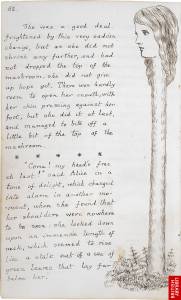 62.
She was a good deal
frightened by this very sudden
change, but as she did not
shrink any further, and had
not dropped the top of the
mushroom, she did not give
up hope yet. There was hardly
room to open her mouth, with
her chin pressing against her
foot, but she did it at last,
and managed to bite off a
little bit of the top of the
mushroom.
* * * * *
"Come! my head's free
at last!" said Alice in a
tone of delight, which changed
into alarm in another mo-
ment, when she found that
her shoulders were nowhere
to be seen: she looked down
upon an immense length of
neck, which seemed to rise
like a stalk out of a sea of
green leaves that lay far
below her.
BRITISH
LIBRARY